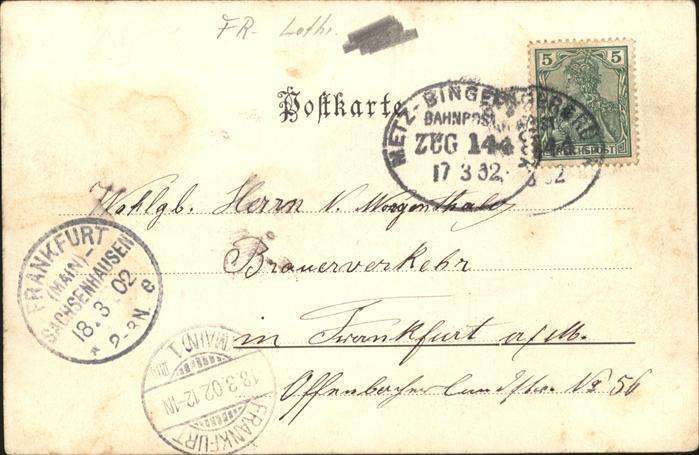 FR- Lothr.
Postkarte
5 5
REICHSPOST
METZ-BINGERBRÜCK
BAHNPOST
ZUG 144
17 3 02
Wohlgb. Herrn V. Morgenthaler
Brauerverkehr
in Frankfurt a/M.
Offenbacher Landstr. No 56
FRANKFURT
(MAIN)-
SACHSENHAUSEN
18. 3. 02
* 2-3N e
FRANKFURT (MAIN) 1
18.3.02.12-1N